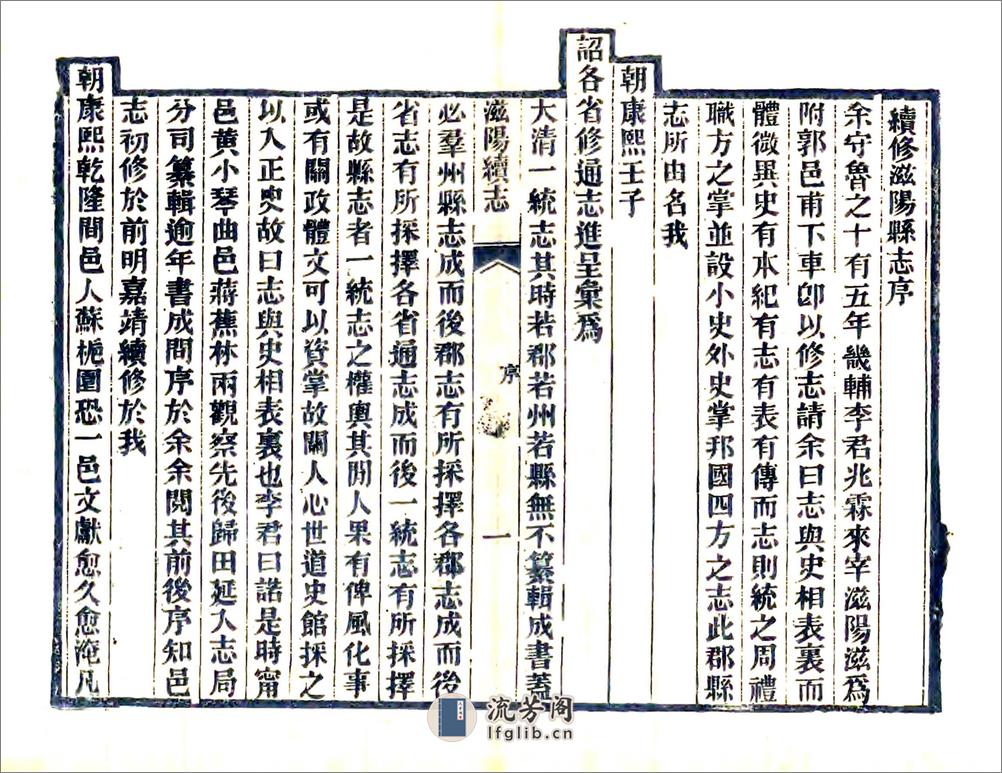 續修滋陽縣志序
余守魯之十有五年畿輔李君兆霖來宰滋陽滋爲
附郭邑甫下車卽以修志請余曰志與史相表裏而
體微異史有本紀有志有表有傳而志則統之周禮
職方之掌並設小史外史掌邦國四方之志此郡縣
志所由名我
朝康熙壬子
詔各省修通志進呈彙爲
大清一統志其時若郡若州若縣無不纂輯成書蓋
滋陽續志
序
一
必羣州縣志成而後郡志有所採擇各郡志成而後
省志有所採擇各省通志成而後一統志有所採擇
是故縣志者一統志之權輿其閒人果有俾風化事
或有關政體文可以資掌故關人心世道史館採之
以入正史故曰志與史相表裏也李君曰諾是時甯
邑黄小琴曲邑蔣蕉林兩觀察先後歸田延入志局
分司纂輯逾年書成問序於余余閱其前後序知邑
志初修於前明嘉靖續修於我
朝康熙乾隆間邑人蘇栀圍恐一邑文獻愈久愈淹凡
流芳阁
lfglib.cn